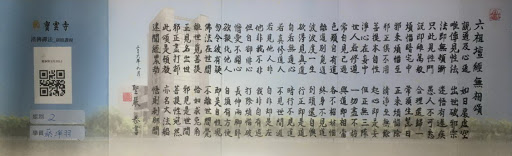 寶雲寺
六祖壇經無相頌
說通及心通 如日處虛空
唯傳見性法 出世破邪宗
法即無頓漸 迷悟有遲疾
只此見性門 愚人不可悉
說即雖萬般 合理還歸一
煩惱暗宅中 常須生慧日
邪來煩惱至 正來煩惱除
邪正俱不用 清淨至無餘
菩提本自性 起心即是妄
淨心在妄中 但正無三障
世人若修道 一切盡不妨
常自見己過 與道即相當
色類自有道 各不相妨惱
離道別覓道 終身不見道
波波度一生 到頭還自懊
欲得見真道 行正即是道
自若無道心 闇行不見道
若真修道人 不見世間過
若見他人非 自非卻是左
他非我不非 我非自有過
但自卻非心 打除煩惱破
憎愛不關心 長伸兩腳臥
欲擬化他人 自須有方便
勿令彼有疑 即是自性現
佛法在世間 不離世間覺
離世覓菩提 恰如求兔角
正見名出世 邪見是世間
邪正盡打卻 菩提性宛然
此頌是頓教 亦名大法船
迷聞經累劫 悟則剎那間
2